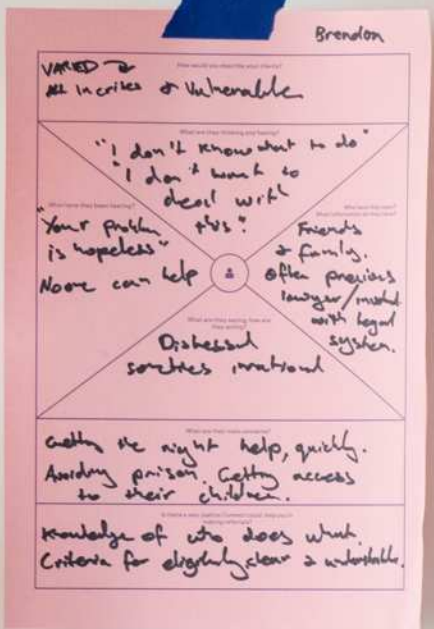 Brendon
How would you describe your clients?
VARIED
All in crises & Vulnerable
What are they thinking and feeling?
"I don't know what to do"
"I don't want to
deal with
this."
What have they been hearing?
"Your problem
is hopeless"
No one can help
What information do they have?
Friends
& family.
Often previous
lawyer/
with legal
system.
What are they saying, how are
they acting?
Distressed
sometimes irrational
What are their main concerns?
Getting the right help, quickly.
Avoiding prison. Getting access
to their children.
making referrals?
Knowledge of who does what.
Criteria for eligibility clear &